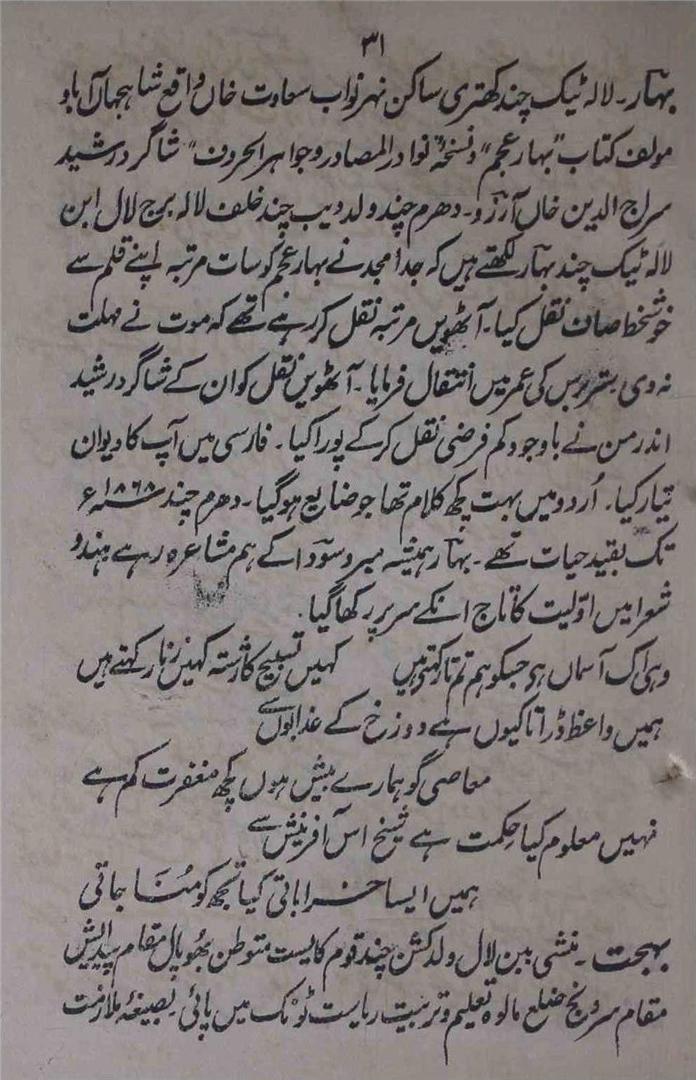 ۳۱
بہار۔ لالہ ٹیک چند کھتری ساکن نہر نواب سعادت خاں واقع شاہجہاں آباد
مولف کتاب "بہار عجم" و نسخۂ "نوادر المصادر و جواہر الحروف" شاگرد رشید
سراج الدین خاں آرزو۔ دھرم چند ولد دیب چند خلف لالہ برج لال ابن
لالہ ٹیک چند بہار لکھتے ہیں کہ جد امجد نے بہار عجم کو سات مرتبہ اپنے قلم سے
خوشخط صاف نقل کیا۔ آٹھویں مرتبہ نقل کر رہے تھے کہ موت نے مہلت
نہ دی ستر برس کی عمر میں انتقال فرمایا۔ آٹھویں نقل کو ان کے شاگرد رشید
اندرمن نے باوجود کم فرضی نقل کرکے پورا کیا۔ فارسی میں آپ کا دیوان
تیار کیا۔ اُردو میں بہت کچھ کلام تھا جو ضایع ہوگیا۔ دھرم چند ۱۸۶۸ء
تک بقید حیات تھے۔ بہار ہمیشہ میر و سودا کے ہم مشاعرہ رہے ہندو
شعرا میں اوّلیت کا تاج انکے سر پر رکھا گیا۔
وہی اک آسماں ہی جسکو ہم تم تار کہتے ہیں کہیں تسبیح کا رشتہ کہیں زنار کہتے ہیں
ہمیں واعظ ڈراتا کیوں ہے دوزخ کے عذابوں سے
معاصی گو ہمارے بیش ہوں کچھ مغفرت کم ہے
نہیں معلوم کیا حکمت ہے شیخ اس آفرینش سے
ہمیں ایسا خراباتی کیا تجھ کو مُناجاتی
بہجت۔ منشی بین لال ولد کشن چند قوم کایست متوطن بھوپال مقام پیدایش
مقام سرونج ضلع مالوہ تعلیم و تربیت ریاست ٹونک میں پائی۔ بصیغۂ ملازمت